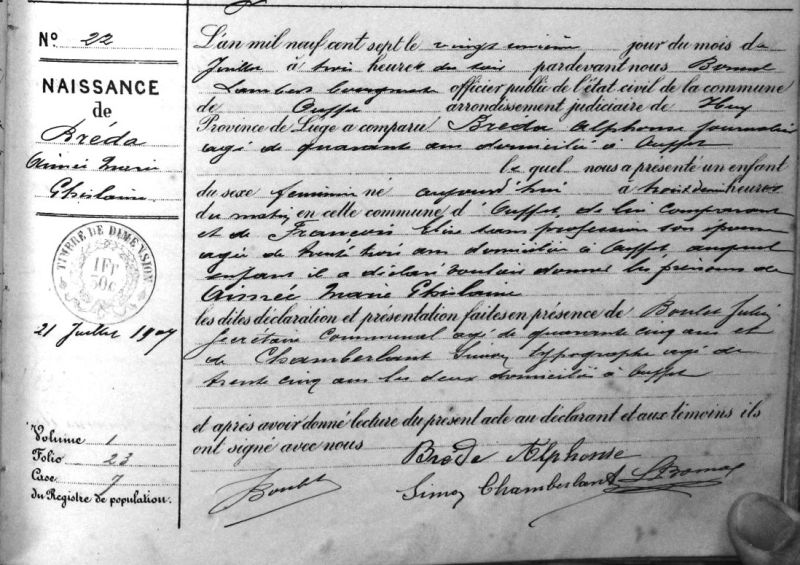 N° 22
NAISSANCE
de
Bréda
Aimée Marie
Ghislaine
TIMBRE DE DIMENSION
1 FR
50c
21 Juillet 1907
Volume 1
Folio 23
Case 7
du Registre de population.
L'an mil neuf cent sept le vingt unième jour du mois de
Juillet à trois heures du soir pardevant nous
Lambert officier public de l'état civil de la commune
de Ouffet arrondissement judiciaire de Huy
Province de Liège a comparu Bréda Alphonse journalier
agé de quarante ans domicilié à Ouffet
le quel nous a présenté un enfant
du sexe feminin né aujourd'hui à heures
du matin en cette commune d'Ouffet, de lui comparant
et de François Elise sans profession son épouse
agée de trente trois ans domiciliée à Ouffet auquel
enfant il a déclaré vouloir donner les prénoms de
Aimée Marie Ghislaine
les dites déclaration et présentation faites en présence de Boulet Julien
secrétaire communal agé de quarante cinq ans et
de Chamberlant Simon typographe agé de
trente cinq ans les deux domiciliés à Ouffet
et après avoir donné lecture du présent acte au déclarant et aux témoins ils
ont signé avec nous
Bréda Alphonse
Boulet Simon Chamberlant